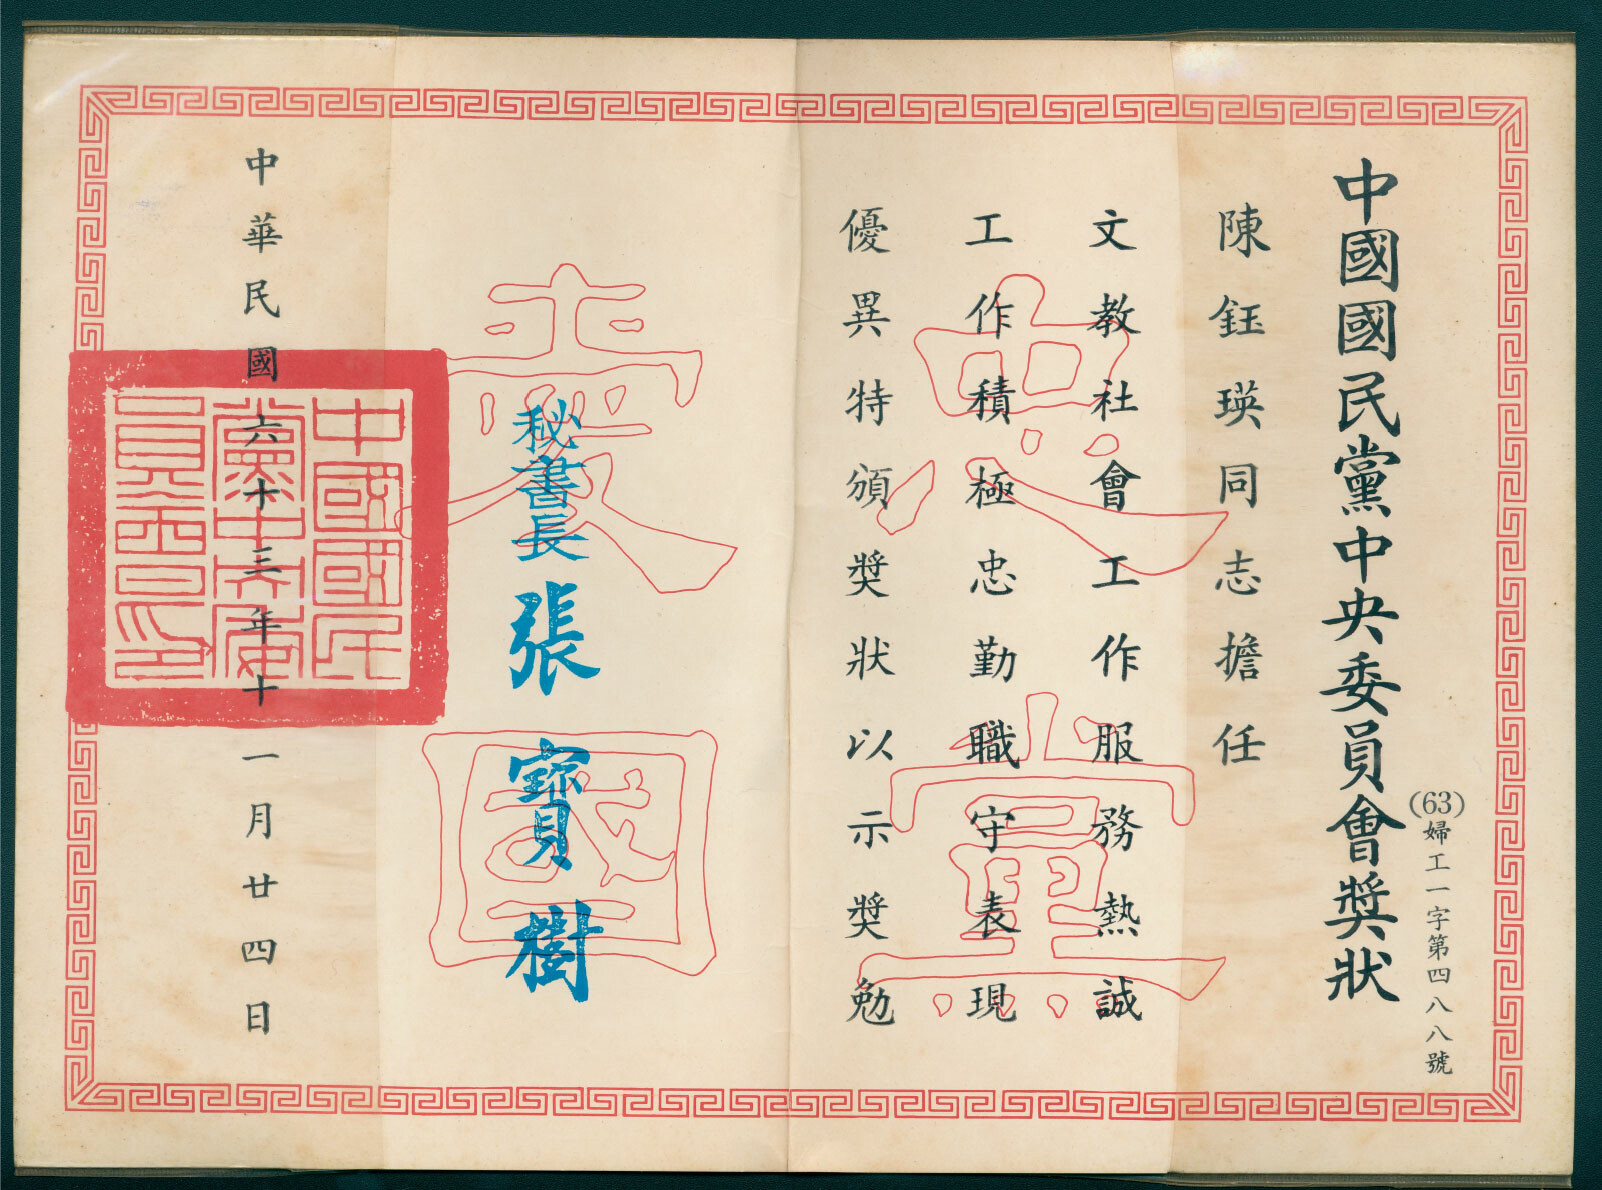 中國國民黨中央委員會獎狀
(63)婦工一字第四八八號
陳鈺瑛同志擔任
文教社會工作服務熱誠
工作積極忠勤職守表現
優異特頒獎狀以示獎勉
忠黨
愛國
秘書長張寶樹
中華民國六十三年十一月廿四日
中國國民
黨中央委
員會印